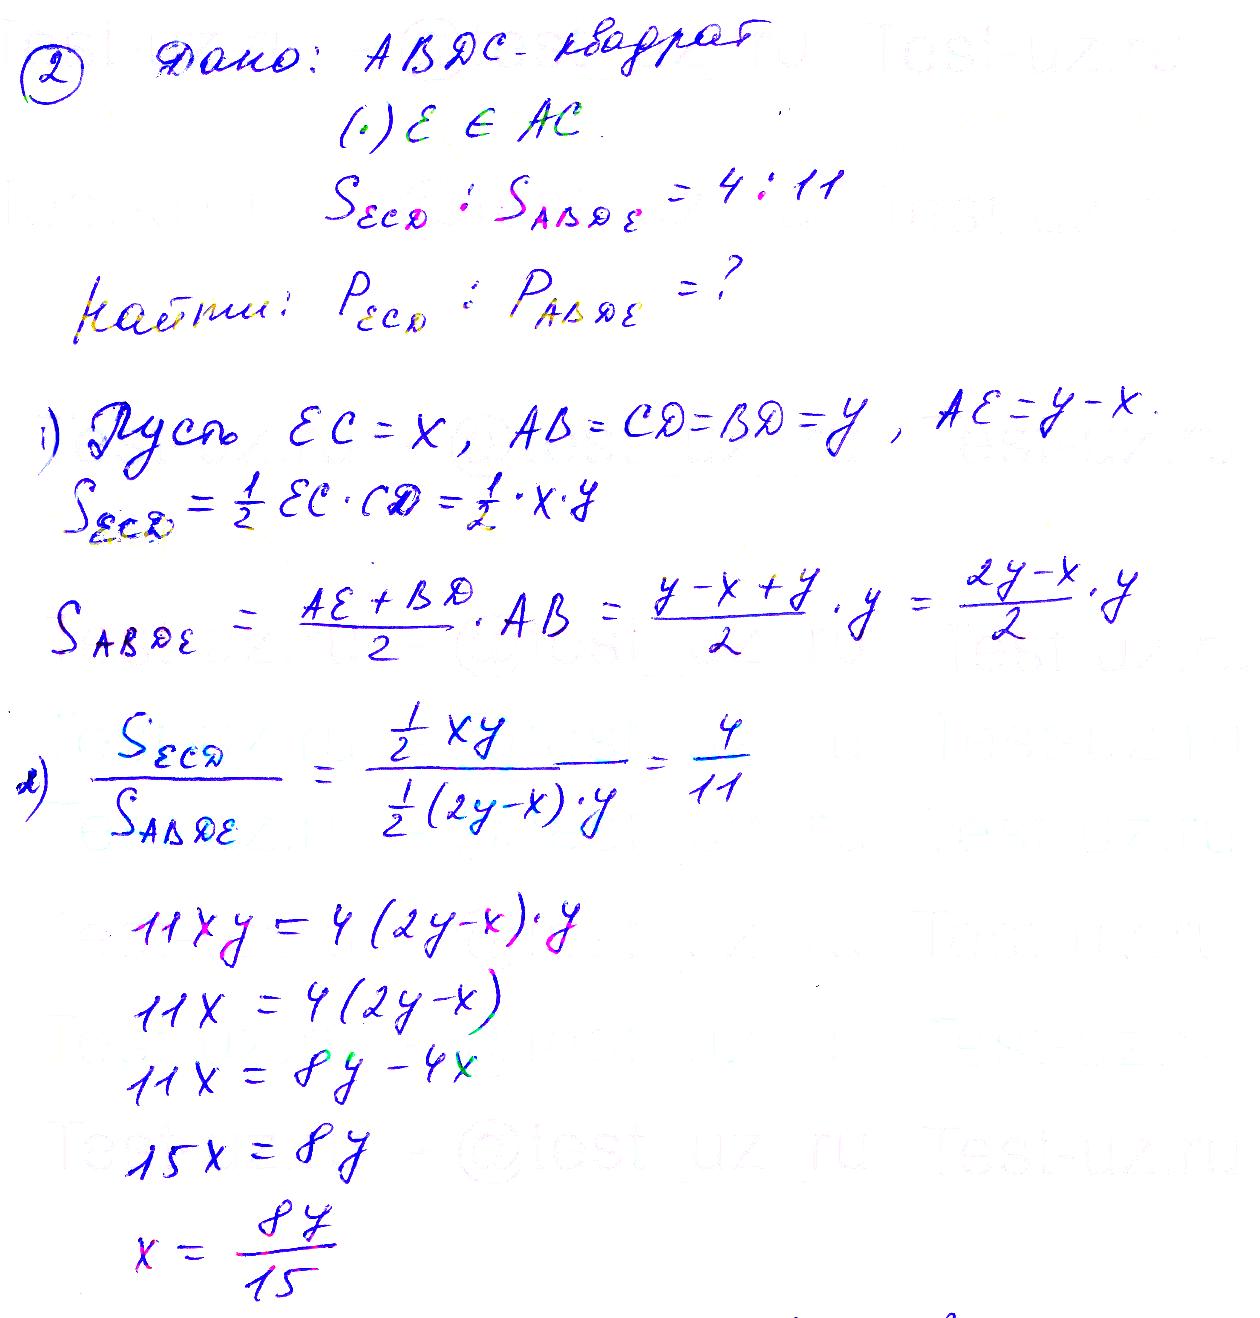 2 Дано: ABDC - квадрат
(·) E ∈ AC
S_ECD : S_ABDE = 4 : 11
Найти: P_ECD : P_ABDE = ?
1) Пусть EC = x, AB = CD = BD = y, AE = y - x.
S_ECD = 1/2 EC · CD = 1/2 · x · y
S_ABDE = (AE + BD)/2 · AB = (y - x + y)/2 · y = (2y - x)/2 · y
2) S_ECD/S_ABDE = (1/2 xy)/(1/2 (2y - x) · y) = 4/11
11xy = 4(2y - x) · y
11x = 4(2y - x)
11x = 8y - 4x
15x = 8y
x = 8y/15